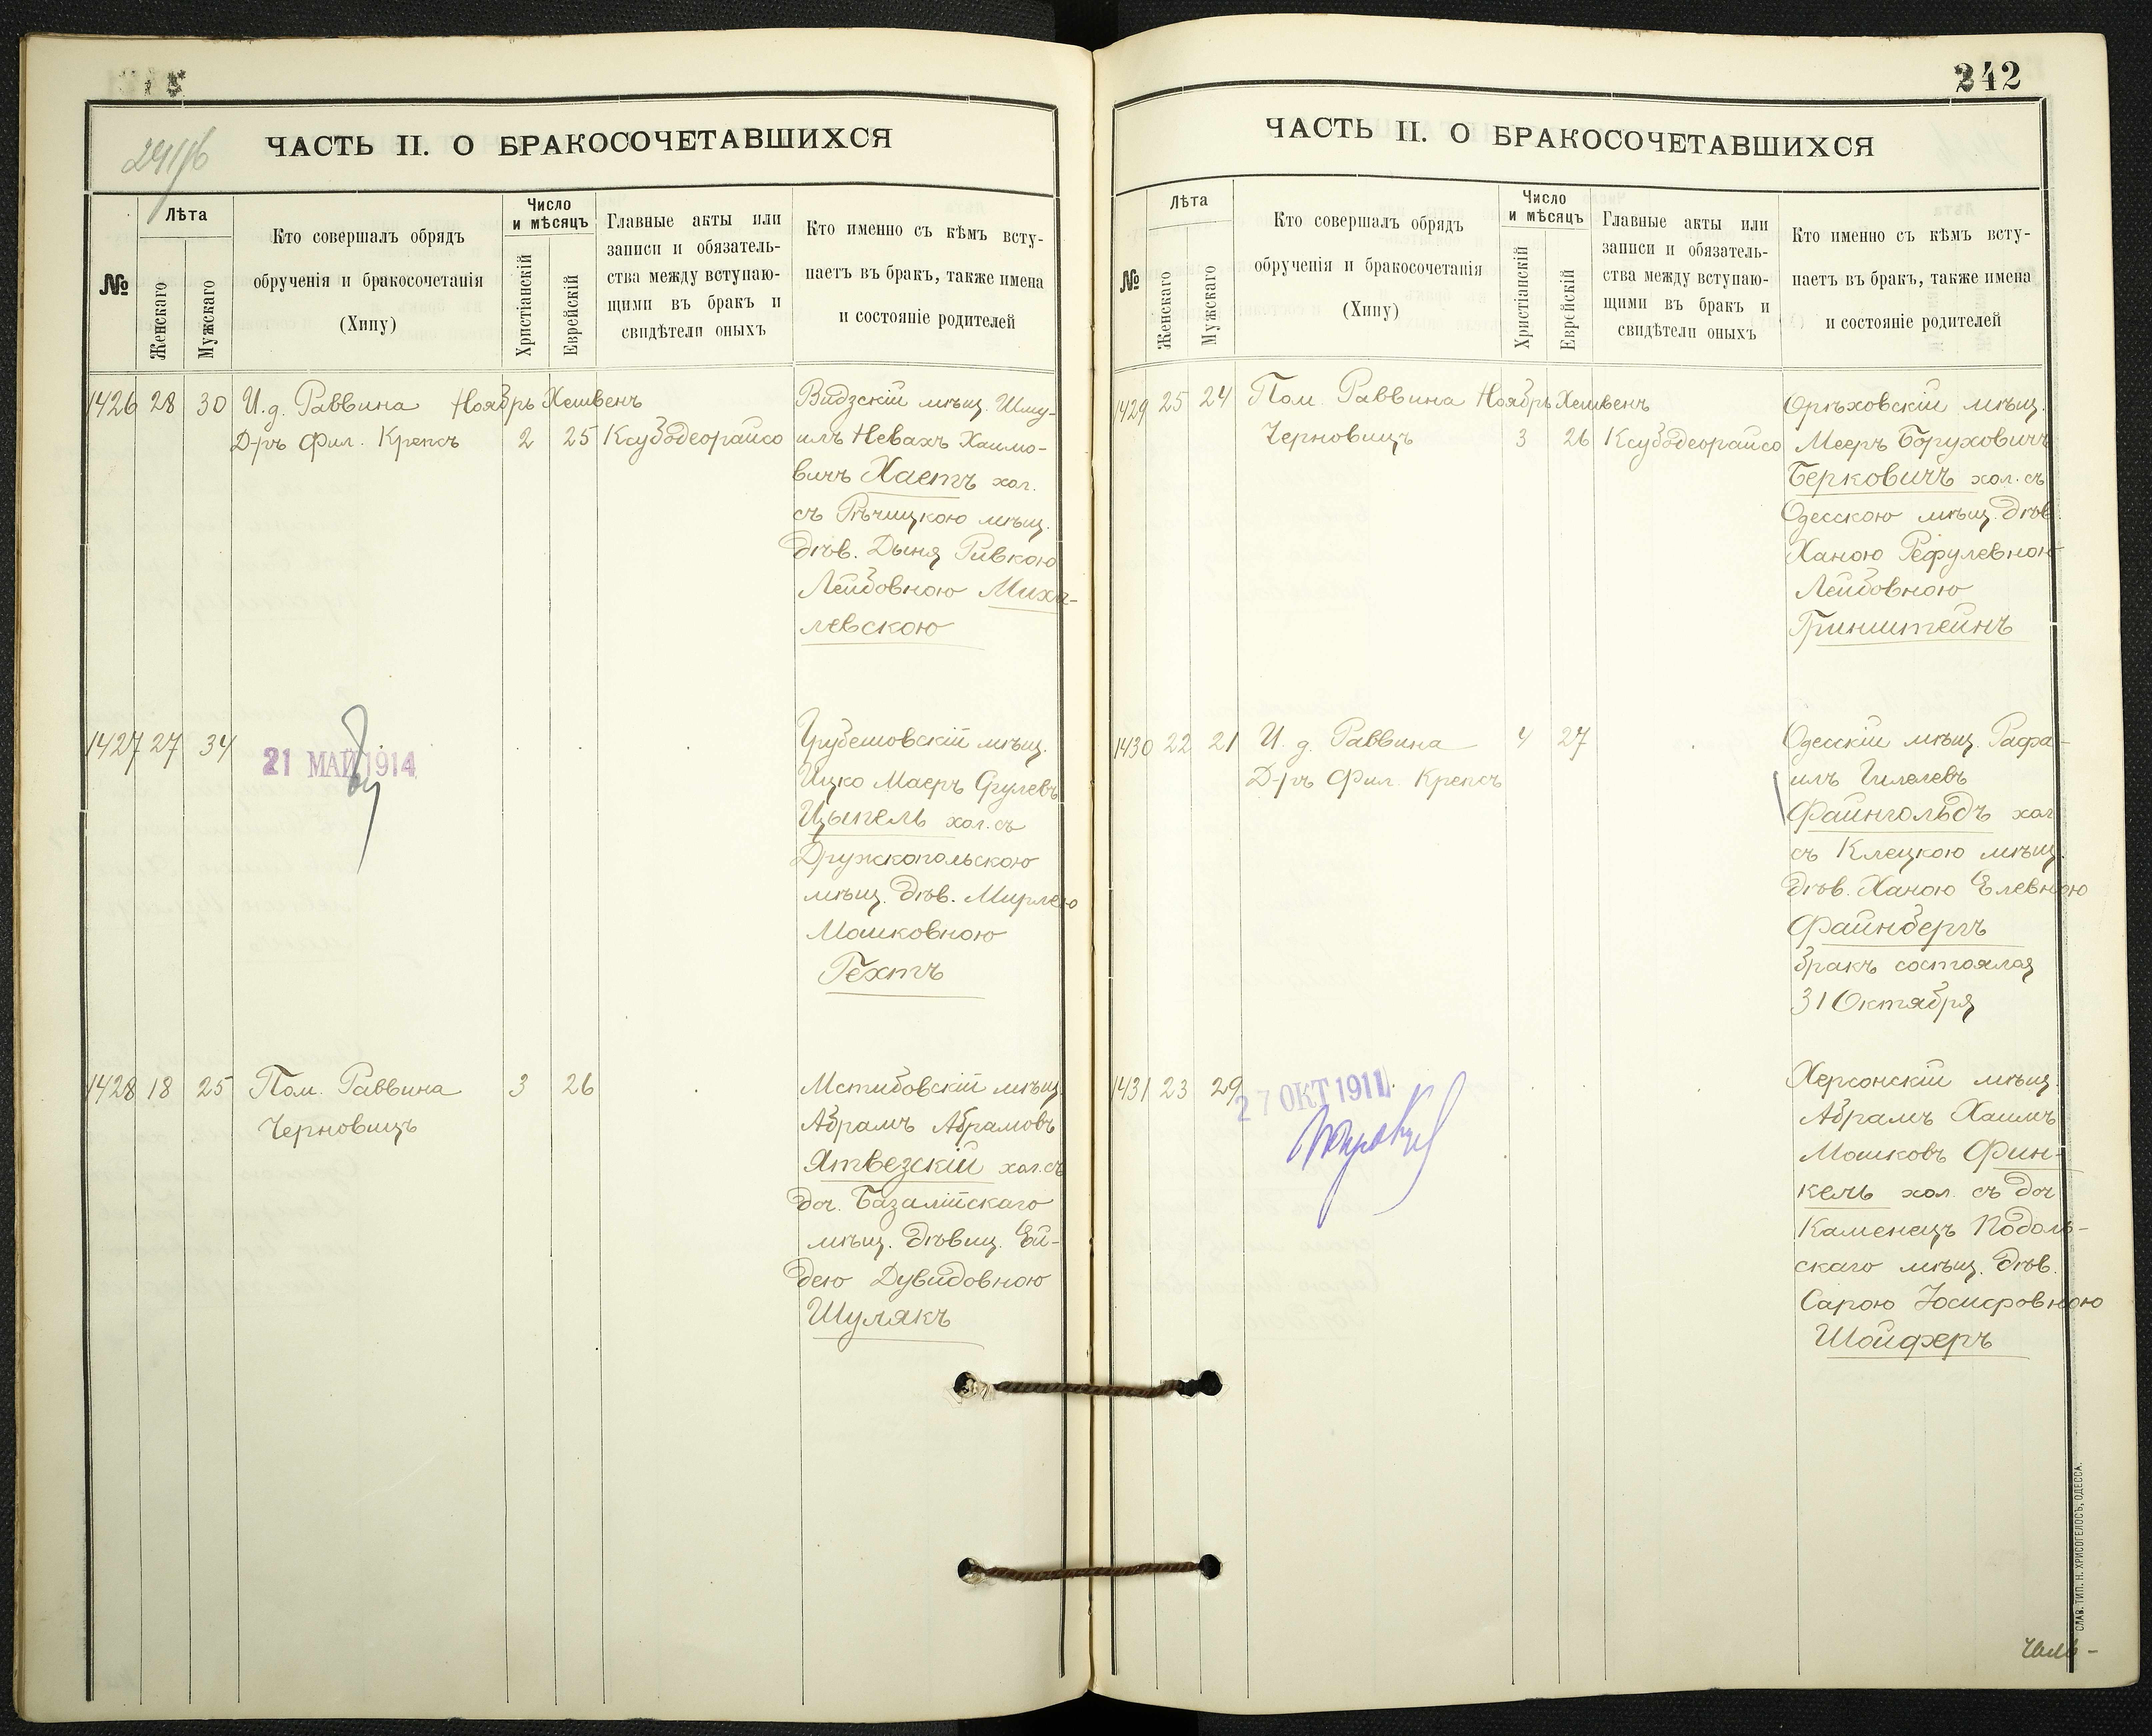 242
ЧАСТЬ II. О БРАКОСОЧЕТАВШИХСЯ
№
Лѣта
Женскаго
Мужскаго
Кто совершалъ обрядъ
обрученія и бракосочетанія
(Хипу)
Число
и мѣсяцъ
Христіанскій
Еврейскій
Главные акты или
записи и обязатель-
ства между вступаю-
щими въ бракъ и
свидѣтели оныхъ
Кто именно съ кѣмъ всту-
паетъ въ бракъ, также имена
и состояніе родителей
1426 28 30 И. д. Раввина Ноябрь Хешвенъ
Д-ръ Фил. Крепсъ 2 25 Ксубодеорайсо
Видзскій мѣщ. Шму-
илъ Невахъ Хаимо-
вичъ Хаетъ хол.
съ Рѣчицкою мѣщ.
дѣв. Дыня Ривкою
Лейбовною Миха-
левскою
1427 27 34
21 МАЙ 1914
Грубешовскій мѣщ.
Ицко Маеръ Срулевъ
Цыпель хол. съ
Дружкопольскою
мѣщ. дѣв. Мирлею
Мошковною
Гехтъ
1428 18 25 Пом. Раввина 3 26
Черновицъ
Мстибовскій мѣщ.
Абрамъ Абрамовъ
Ятвезскій хол. съ
доч. Базалійскаго
мѣщ. дѣвиц. Ей-
дею Дувидовною
Шулякъ
ЧАСТЬ II. О БРАКОСОЧЕТАВШИХСЯ
№
Лѣта
Женскаго
Мужскаго
Кто совершалъ обрядъ
обрученія и бракосочетанія
(Хипу)
Число
и мѣсяцъ
Христіанскій
Еврейскій
Главные акты или
записи и обязатель-
ства между вступаю-
щими въ бракъ и
свидѣтели оныхъ
Кто именно съ кѣмъ всту-
паетъ въ бракъ, также имена
и состояніе родителей
1429 25 24 Пом. Раввина Ноябрь Хешвенъ
Черновицъ 3 26 Ксубодеорайсо
Орѣховскій мѣщ.
Мееръ Боруховичъ
Берковичъ хол. съ
Одесскою мѣщ. дѣв.
Ханою Рефулевною
Лейбовною
Гринштейнъ
1430 22 21 И. д. Раввина 4 27
Д-ръ Фил. Крепсъ
Одесскій мѣщ. Рафа-
илъ Гилелевъ
Файнгольдъ хол
съ Клецкою мѣщ.
дѣв. Ханою Елевною
Файнбергъ
бракъ состоялся
31 Октября
1431 23 29
27 ОКТ 1911
Херсонскій мѣщ.
Абрамъ Хаимъ
Мошковъ Фин-
кель хол. съ доч
Каменецъ Подоль-
скаго мѣщ. дѣв.
Сарою Іосифовною
Шойферъ
СЛАВ. ТИП. Н. ХРИСОГЕЛОСЪ, ОДЕССА.